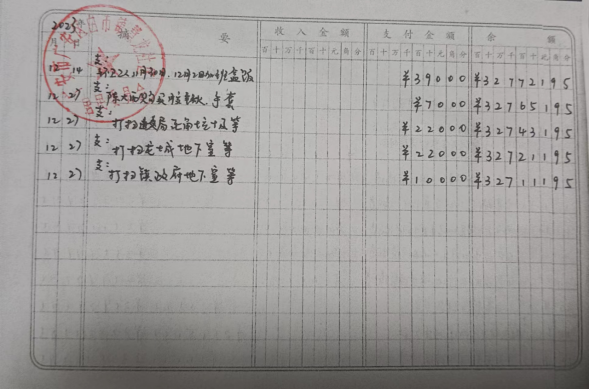 2023
摘 要 收 入 金 额 支 付 金 额 余 额
百十万千百十元角分 百十万千百十元角分 百十万千百十元角分
12 14 支: 11月30日、12月2日加班盒饭 ¥39000 ¥32772195
12 27 支: 手套 ¥7000 ¥32765195
12 27 支: 打扫 垃圾等 ¥22000 ¥32743195
12 27 支: 打扫龙城地下室等 ¥22000 ¥32721195
12 27 支: 打扫镇政府地下室等 ¥10000 ¥32711195